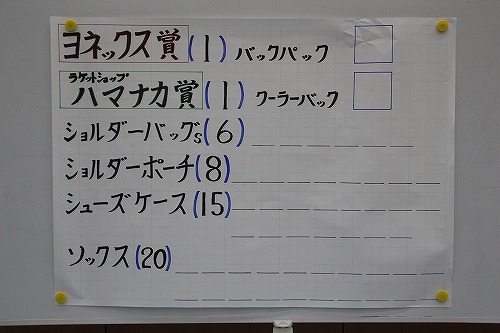 ヨネックス賞(1) バックパック
ラケットショップ
ハマナカ賞(1) クーラーバック
ショルダーバッグS(6)
ショルダーポーチ(8)
シューズケース(15)
ソックス(20)